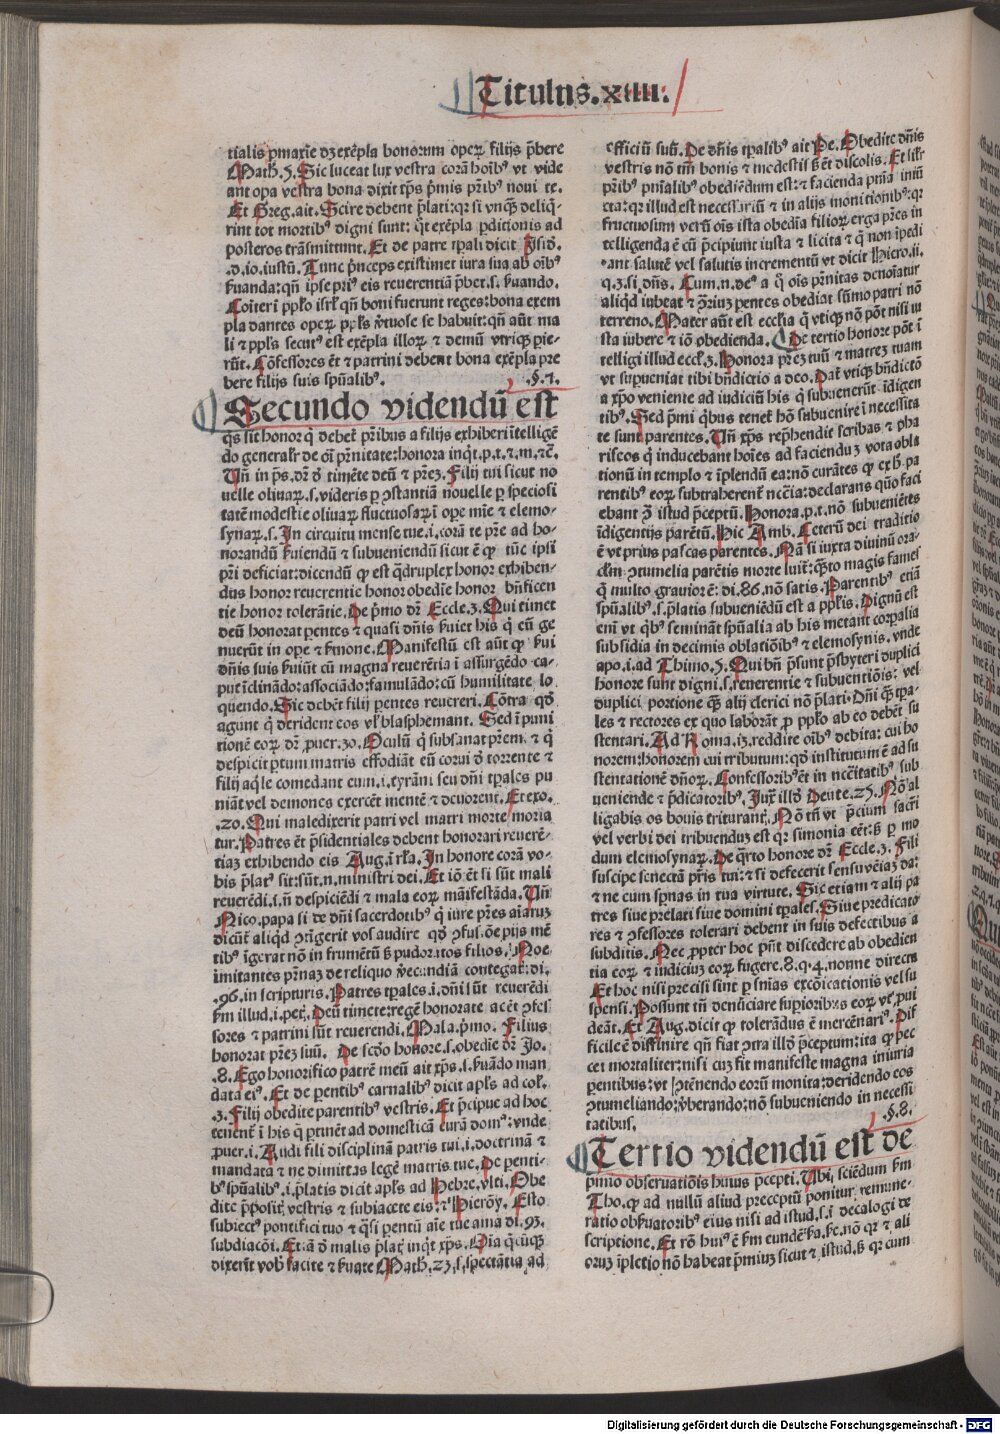 Titulus.xiiii.
tialis pmaxie dz exēpla bonorum operꝝ filijs p̄bere
Math.5. Sic luceat lux vestra corā hoībꝰ vt vide
ant opa vestra bona dixit xp̄s p̄mis pr̄ibꝰ noui te.
Et Greg. ait. Scire debent p̄lati: qꝛ si vnqꝫ deliq̄-
rint tot mortibꝰ digni sunt: q̄t exēpla pditionis ad
posteros trāsmittunt. Et de patre tpali dicit Isid.
.d.io. iustū. Tunc p̄nceps existimet iura sua ab oībꝰ
ẜuanda: qn̄ ipse priꝰ eis reuerentiā p̄bet.s. ẜuando.
Coiter ī pplo isrl̓ qn̄ boni fuerunt reges: bona exem
pla dantes operꝝ pplꝰs v̓tuose se habuit: qn̄ aūt ma
li ⁊ pplꝰs secutꝰ est exēpla illorꝝ ⁊ demū vtriqꝫ pie-
rūt. Cōfessores ēt ⁊ patrini debent bona exēpla pre
bere filijs suis spūalibꝰ. .§.7.
Secundo videndū est
qs sit honor q̄ debet pr̄ibus a filijs exhiberi ītelligē
do generalr̓ de oī pr̄nitate: honora inqt.p.t.⁊.m.⁊c̄.
Uñ in ps. dr̄ d̓ timēte deū ⁊ pr̄eꝫ. Filij tui sicut no
uelle oliuarꝝ.s. videris ꝑ ꝯstantiā nouelle ꝑ speciosi
tatē modestie oliuarꝝ fluctuosarꝝ ī ope mīe ⁊ elemo-
synarꝝ.s. In circuitu mense tue.i. corā te pr̄e ad ho-
norandū ẜuiendū ⁊ subueniendū sicut ē ꝙ tūc ipsi
pr̄i deficiat: dicendū ꝙ est q̄druplex honor exhiben-
dus honor reuerentie honor obedīe honor bn̄ficen
tie honor tolerātie. De p̄mo dr̄ Eccle.3. Qui timet
deū honorat pentes ⁊ quasi dn̄is ẜuiet his q̄ eū ge
nuerūt in ope ⁊ ẜmone. Manifestū est aūt ꝙ ẜui
dn̄is suis ẜuiūt cū magna reuerētia ī assurgēdo ca-
put īclināndo: associādo: famulādo: cū humilitate lo
quendo. Sic debēt filij pentes reuereri. Cōtra qd̓
agunt q̄ derident eos vl̓ blasphemant. Sed ī puni
tionē eorꝝ dr̄ puer.30. Oculū q̄ subsanat pr̄em: ⁊ q̄
despicit ptum matris effodiāt eū corui d̓ torrente ⁊
filij aq̄le comedant eum.i. tyrāni seu dn̄i tpales pu
niāt vel demones exercēt mentē ⁊ deuorent. Et exo.
.20. Qui maledixerit patri vel matri morte moria
tur. Patres ēt p̄sidentiales debent honorari reuerē-
tiaꝫ exhibendo eis Aug. ī rl̓a. In honore corā vo-
bis p̄latꝰ sit: sūt.n. ministri dei. Et iō ēt si sūt mali
reuerēdi.i. ñ despiciēdi ⁊ mala eorꝝ māifestāda. Uñ
Nico. papa si de dn̄i sacerdotibꝰ q̄ iure pr̄es aīaruꝫ
dicūt aliqd̓ ꝯtigerit vos audire qd̓ ꝯfus.ōe pijs mē
tibꝰ īgerat nō in frumētū ẜ pudoratos filios. Noe
imitantes pr̄naꝫ de reliquo v̓ecundiā contegat: di.
.96. in scripturis. Patres tpales.i. dn̄i sūt reuerēdi
ẜm illud.i. pet. Deū timete: regē honorate acēt ꝯfes
sores ⁊ patrini sūt reuerendi. Mala.p̄mo. Filius
honorat pr̄eꝫ suū. De scdo honore.s. obedīe dr̄ Jo.
.8. Ego honorifico patrē meū ait xp̄s.i. ẜuādo man
data eiꝰ. Et de pentibꝰ carnalibꝰ dicit apls ad col.
.3. Filij obedite parentibꝰ vestris. Et p̄cipue ad hoc
tenent̄ ī his q̄ ptinēt ad domesticā curā domꝰ: vnde
puer.i. Audi fili disciplinā patris tui.i. doctrinā ⁊
mandata ⁊ ne dimittas legē matris tue. De penti-
bꝰ spūalibꝰ.i. p̄latis dicit apls ad Hebre. vlti. Obe
dite p̄positꝰ vestris ⁊ subiacete eis: ⁊ Hieroy. Esto
subiectꝰ pontifici tuo ⁊ q̄si pentū aīe tue ama di.93.
subdiacōi. Et iā d̓ malis p̄lat̄ inqt xp̄s. Oīa q̄cūqꝫ
dixerīt vob̓ facite ⁊ ẜuate Math.23.s. spectātia ad
officiū suū. De dn̄is tpalibꝰ ait Pe. Obedite dn̄is
vestris nō tm̄ bonis ⁊ modestis ẜ ēt discolis. Et silr̄
pr̄ibꝰ pn̄ialibꝰ obediēdum est: ⁊ facienda pn̄ia iniū
cta: qꝛ illud est necessariū ⁊ in alijs monitionibꝰ: qꝛ
fructuosum verū oīs ista obedīa filiorꝝ erga pr̄es in
telligenda ē cū p̄cipiunt iusta ⁊ licita ⁊ q̄ non īpedi
ant salutē vel salutis incrementū vt dicit Hiero.ii.
q.3. si dn̄s. Cum.n.deꝰ a q̄ oīs pr̄nitas denoīatur
aliqd iubeat ⁊ ꝯrius pentes obediat sūmo patri nō
terreno. Mater aūt est ecclīa q̄ vtiqꝫ nō pōt nisi iu
sta iubere ⁊ iō obedienda. De tertio honore pōt ī
telligi illud eccl̓.3. Honora pr̄eꝫ tuū ⁊ matreꝫ tuam
vt supueniat tibi bn̄dictio a deo. Dat̄ vtiqꝫ bn̄dictō
a xp̄o veniente ad iudiciū his q̄ subuenerūt īdigen
tibꝰ. Sed p̄mi q̄bus tenet̄ hō subuenire ī necessita
te sunt parentes. Uñ xp̄s rep̄hendit scribas ⁊ pha
riseos q̄ inducebant hoīes ad faciendū vota obla
tionū in templo ⁊ īplendū ea: nō curātes ꝙ ex b̓ pa
rentibꝰ eorꝝ subtraherent̄ nc̄cia: declarans quō faci
ebant ꝯ̄ istud p̄ceptū. Honora.p.t. nō subueniētes
īdigentijs parētū. Hic Amb. Ceterū dei traditio
ē vt prius pascas parentes. Nā si iuxta diuinū ora-
clm̄ ꝯtumelia parētis morte luit̄: q̄sto magis fames
q̄ multo grauior ē: di.86. nō satis. Parentibꝰ etiā
spūalibꝰ.s. p̄latis subueniēdū est a pplis. Dignū est
eni vt q̄bꝰ seminat̄ spūalia ab his metant corpalia
subsidia in decimis oblatiōibꝰ ⁊ elemosynis. vnde
apo.i. ad Thimo.5. Qui bn̄ p̄sunt p̄sbyteri duplici
honore sunt digni.s. reuerentie ⁊ subuentiōis: vel
duplici portione qꝫ alij clerici nō p̄lati. Dn̄i qꝫ tpa-
les ⁊ rectores ex quo laborāt p pplo ab eo debēt su
stentari. Ad Roma.13. reddite oībꝰ debita: cui ho
norem: honorem cui tributum: qd̓ institutum ē ad su
stentationē dn̄orꝝ. Confessoribꝰ ēt in nc̄citatibꝰ sub
ueniende ⁊ p̄dicatoribꝰ. Jux̄ illd̓ Deute.25. Nō al
ligabis os bouis triturant̄. Nō tn̄ vt p̄cium sacri
vel verbi dei tribuenduꝫ est qꝛ simonia eēt: ẜ p mo
dum elemosynarꝝ. De q̄rto honore dr̄ Eccle.3. Fili
suscipe senectā pr̄is tui: ⁊ si defecerit sensu vēiaꝫ da:
⁊ ne eum spnas in tua virtute. Sic etiam ⁊ alij pa
tres siue prelati siue domini tpales. Siue predicato
res ⁊ ꝯfessores tolerari debent in suis defectibus a
subditis. Nec propter hoc pn̄t discedere ab obedien
tia eorꝝ ⁊ iudiciuꝫ eorꝝ fugere.8.q.4. nonne directa
Et hoc nisi precisi sint p sn̄ias excōicationis vel su
spensi. Possunt tn̄ denūciare supioribus eorꝝ vt pui
deāt. Et Aug. dicit ꝙ tolerādus ē mercēnariꝰ. Dif
ficile ē diffinire qn̄ fiat ꝯtra illd̓ p̄ceptum: ita ꝙ pec
cet mortaliter: nisi cuꝫ fit manifeste magna iniuria
pentibus: vt ꝯtēnendo eorū monita: deridendo eos
ꝯtumeliando: v̓berando: nō subueniendo in necessi
tatibus. .§.8.
Tertio videndū est de
pmio obseruatiōis huius p̄cepti. Ubi sciēdum ẜm
Tho. ꝙ ad nullū aliud preceptū ponitur remune-
ratio obẜuatoribꝰ eius nisi ad istud.s. ī decalogi de
scriptione. Et rō huiꝰ ē ẜm eundē: ẜa.ẜc. nō qꝛ ⁊ ali
oruꝫ īpletio nō habeat p̄miuꝫ sicut ⁊ istud. ẜ qꝛ cum
Digitalisierung gefördert durch die Deutsche Forschungsgemeinschaft - DFG